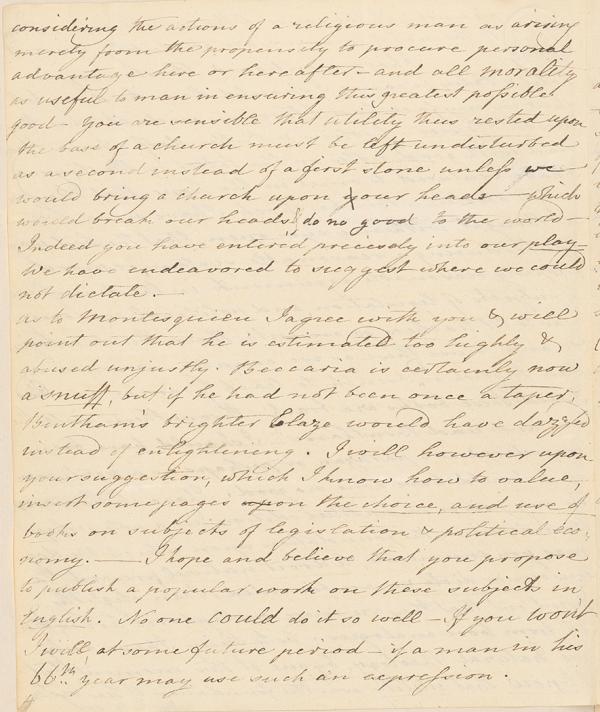 considering the actions of a religious man as arising
merely from the propensity to procure personal
advantage here or hereafter – and all morality
as useful to man in ensuring this greatest possible
good – You are sensible that utility thus rested upon
the base of a church must be left undisturbed
as a second instead of a first stone unless we
would bring a church upon your heads – which
would break our heads & do no good to the world –
Indeed you have entered precisely into our play –
We have endeavored to suggest where we could
not dictate. –
as to Montesquieu I agree with you & will
point out that he is estimated too highly &
abused unjustly. Beccaria is certainly now
a snuff, but if he had not been once a taper,
Bentham's brighter blaze would have dazzled
instead of enlightening. I will however upon
your suggestion, which I know how to value,
insert some pages upon the choice, and use of
books on subjects of legislation & political eco-
nomy. — I hope and believe that you propose
to publish a popular work on these subjects in
English. No one could do it so well – If you wont
I will, at some future period – if a man in his
66th year may use such an expression.